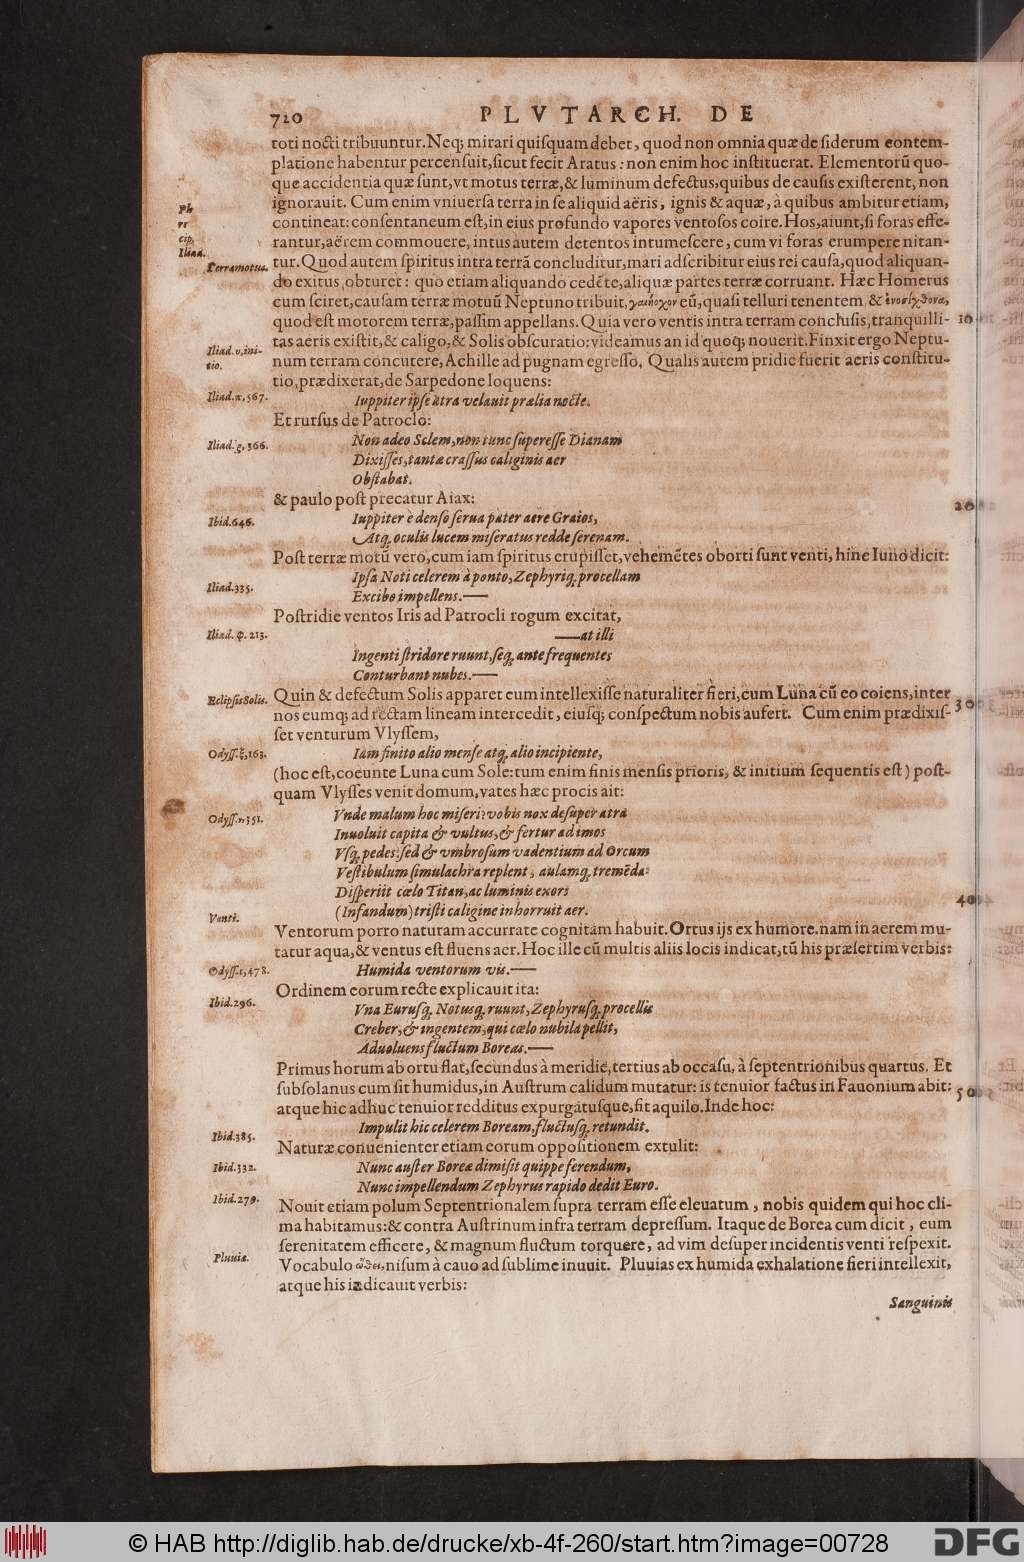 720 PLVTARCH. DE
toti nocti tribuuntur. Neq; mirari quisquam debet, quod non omnia quæ de siderum contem-
platione habentur percensuit, sicut fecit Aratus: non enim hoc instituerat. Elementorũ quo-
que accidentia quæ sunt, vt motus terræ, & luminum defectus, quibus de causis existerent, non
ignorauit. Cum enim vniuersa terra in se aliquid aëris, ignis & aquæ, à quibus ambitur etiam,
Ph
contineat: consentaneum est, in eius profundo vapores ventosos coire. Hos, aiunt, si foras effe-
cip.
rantur, aërem commouere, intus autem detentos intumescere, cum vi foras erumpere nitan-
Iliad.
Terramotus.
tur. Quod autem spiritus intra terrã concluditur, mari adscribitur eius rei causa, quod aliquan-
do exitus, obturet: quo etiam aliquando cedẽte, aliquæ partes terræ corruant. Hæc Homerus
cum sciret, causam terræ motuũ Neptuno tribuit, γαιήοχον eũ, quasi telluri tenentem & ἐνοσίχθονα,
quod est motorem terræ, passim appellans. Quia vero ventis intra terram conclusis, tranquilli- 10
tas aeris existit, & caligo, & Solis obscuratio: videamus an id quoq; nouerit. Finxit ergo Neptu-
Iliad. υ, ini-
tio.
num terram concutere, Achille ad pugnam egresso. Qualis autem pridie fuerit aeris constitu-
tio, prædixerat, de Sarpedone loquens:
Iliad. π, 567.
Iuppiter ipse atra velauit prælia nocte.
Et rursus de Patroclo:
Iliad. ρ, 366.
Non adeo Solem, non tunc superesse Dianam
Dixisses, tantæ crassus caliginis aer
Obstabat.
& paulo post precatur Aiax: 20
Ibid. 646.
Iuppiter è denso serua pater aere Graios,
Atq; oculis lucem miseratus redde serenam.
Post terræ motũ vero, cum iam spiritus erupisset, vehemẽtes oborti sunt venti, hinc Iuno dicit:
Iliad. 335.
Ipsa Noti celerem à ponto, Zephyriq; procellam
Excibo impellens.—
Postridie ventos Iris ad Patrocli rogum excitat,
Iliad. φ. 213.
—at illi
Ingenti stridore ruunt, seq; ante frequentes
Conturbant nubes.—
Eclipsis Solis.
Quin & defectum Solis apparet eum intellexisse naturaliter fieri, cum Luna cũ eo coiens, inter
nos eumq; ad rectam lineam intercedit, eiusq; conspectum nobis aufert. Cum enim prædixis- 30
set venturum Vlyssem,
Odyss. ξ, 163.
Iam finito alio mense atq; alio incipiente,
(hoc est, coeunte Luna cum Sole: tum enim finis mensis prioris, & initium sequentis est) post-
quam Vlysses venit domum, vates hæc procis ait:
Odyss. υ. 351.
Vnde malum hoc miseri? vobis nox desuper atra
Inuoluit capita & vultus, & fertur ad imos
Vsq; pedes: sed & vmbrosum vadentium ad Orcum
Vestibulum simulachra replent, aulamq; tremẽda:
Disperiit cœlo Titan, ac luminis exors 40
(Infandum) tristi caligine inhorruit aer.
Venti.
Ventorum porro naturam accurrate cognitam habuit. Ortus ijs ex humore. nam in aerem mu-
tatur aqua, & ventus est fluens aer. Hoc ille cũ multis aliis locis indicat, tũ his præsertim verbis:
Odyss. ε, 478.
Humida ventorum vis.—
Ordinem eorum recte explicauit ita:
Ibid. 296.
Vna Eurusq; Notusq; ruunt, Zephyrusq; procellis
Creber, & ingentem, qui cœlo nubila pellit,
Aduoluens fluctum Boreas.—
Primus horum ab ortu flat, secundus à meridie, tertius ab occasu, à septentrionibus quartus. Et
subsolanus cum sit humidus, in Austrum calidum mutatur: is tenuior factus in Fauonium abit: 50
atque hic adhuc tenuior redditus expurgatusque, fit aquilo. Inde hoc:
Ibid. 385.
Impulit hic celerem Boream, fluctusq; retundit.
Naturæ conuenienter etiam eorum oppositionem extulit:
Ibid. 332.
Nunc auster Boreæ dimisit quippe ferendum,
Nunc impellendum Zephyrus rapido dedit Euro.
Ibid. 279.
Nouit etiam polum Septentrionalem supra terram esse eleuatum, nobis quidem qui hoc cli-
ma habitamus: & contra Austrinum infra terram depressum. Itaque de Borea cum dicit, eum
serenitatem efficere, & magnum fluctum torquere, ad vim desuper incidentis venti respexit.
Pluuia.
Vocabulo ὠθει, nisum à cauo ad sublime inuuit. Pluuias ex humida exhalatione fieri intellexit,
atque his indicauit verbis:
Sanguinis
© HAB http://diglib.hab.de/drucke/xb-4f-260/start.htm?image=00728
DFG